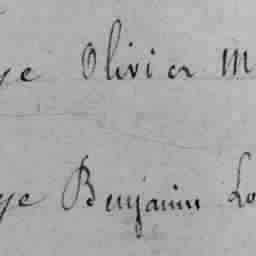 ye Olivier M
ye Benjamin Lo